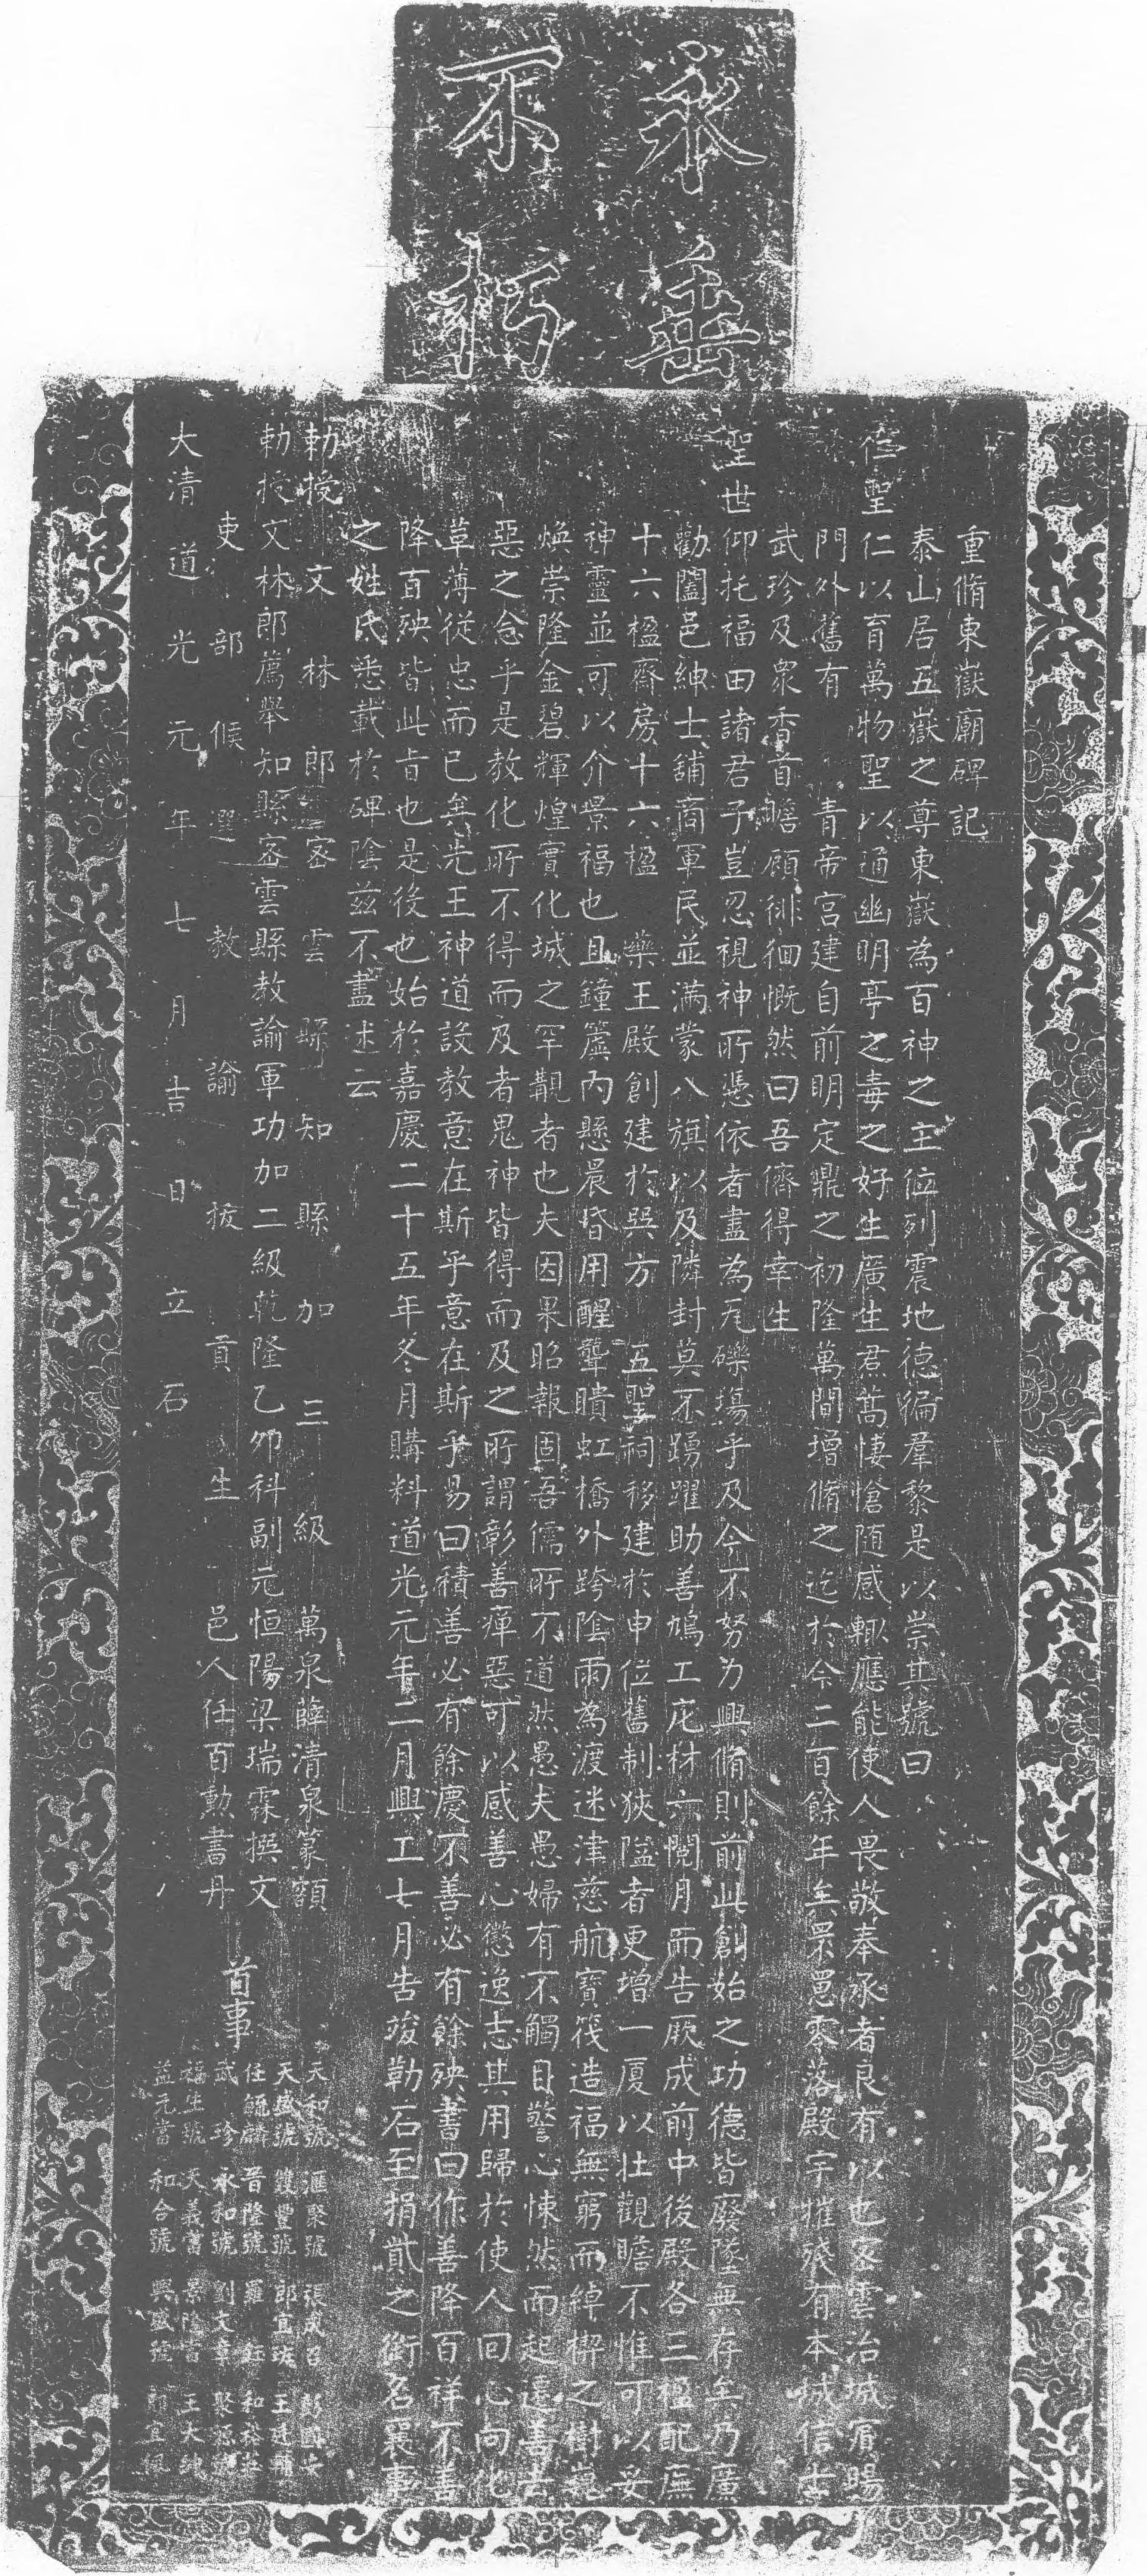 永垂
不朽
重脩東嶽廟碑記
泰山居五嶽之尊東嶽為百神之主位列震地德徧羣黎是以崇其號曰
仁聖仁以育萬物聖以通幽明亭之毒之好生廣生焄蒿悽愴随感輙應能使人畏敬奉承者良有以也密雲治城
門外舊有 青帝宮建自前明定鼎之初隆萬間增脩之迄於今二百餘年矣罘罳零落殿宇摧殘有本城信士
武珍及衆香首瞻顧徘徊慨然曰吾儕得幸生
聖世仰托福田諸君子豈忍視神所憑依者盡為瓦礫塲乎及今不努力興脩則前此創始之功德皆廢墜無存矣乃廣
勸闔邑紳士舖商軍民並滿蒙八旗以及隣封莫不踴躍助善鳩工庀材六閱月而告厥成前中後殿各三楹配廡
十六楹齋房十六楹 藥王殿創建於巽方 五聖祠移建於申位舊制狹隘者更增一廈以壯觀瞻不惟可以妥
神靈並可以介景福也且鐘簴內懸晨昏用醒聾瞶虹橋外跨陰雨為渡迷津慈航寶筏造福無窮而綽楔之樹嵬
煥崇隆金碧輝煌實化城之罕覯者也夫因果昭報固吾儒所不道然愚夫愚婦有不觸目警心悚然而起遷善去
惡之念乎是教化所不得而及者鬼神皆得而及之所謂彰善癉惡可以感善心懲逸志其用歸於使人回心向化
草薄從忠而已矣先王神道設教意在斯乎意在斯乎易曰積善必有餘慶不善必有餘殃書曰作善降百祥不善
降百殃皆此旨也是後也始於嘉慶二十五年冬月購料道光元年二月興工七月告竣勒石至捐貲之銜名襄事
之姓氏悉載於碑陰茲不盡述云
勅授文林郎密雲縣知縣加三級萬泉薛清泉篆額
勅授文林郎薦舉知縣密雲縣教諭軍功加二級乾隆乙卯科副元恒陽梁瑞霖撰文
吏部候選教諭拔貢生邑人任百勲書丹
大清道光元年七月吉日立石
首事
天和號 滙聚號 張成召
天盛號 雙豐號 郎宜 王廷輔
任毓麟 晉隆號 羅鈺 和裕
武珍 永和號 劉文章 聚
福生號 天義當 景 王大紳
益元當 和合號 興盛號 宜